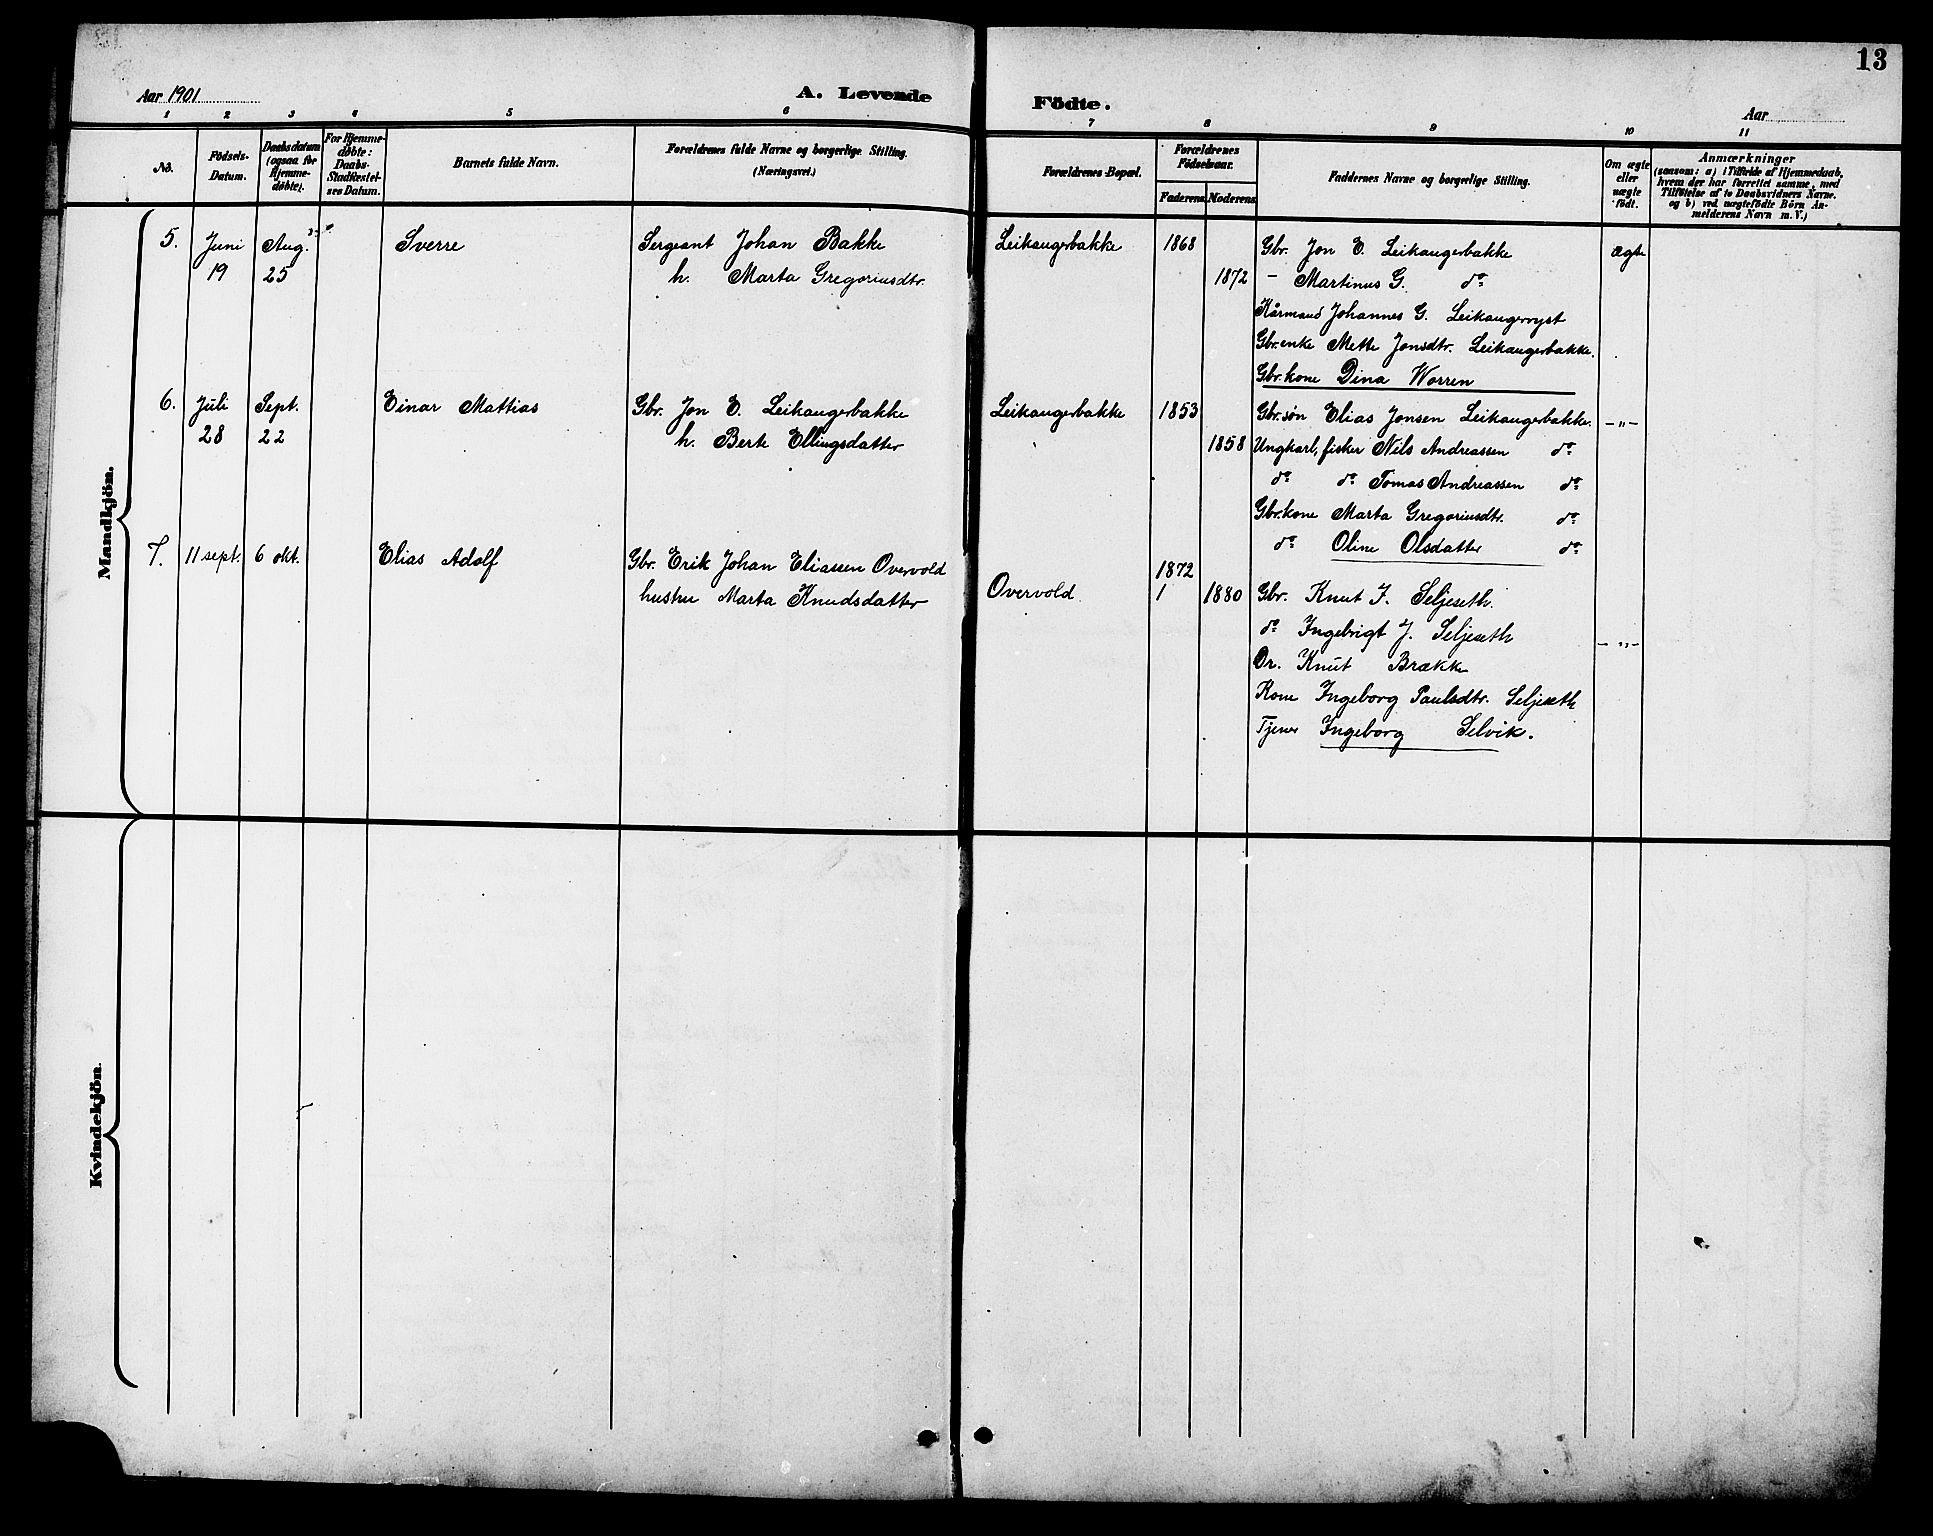 13
Aar 1901 A. Levende Födte. Aar
1 2 3 4 5 6 7 8 9 10 11
No. Födsels-Datum. Daabsdatum (ogsaa for Hjemmedøbte). For Hjemmedøbte: Daabs-Stadfæstelses Datum. Barnets fulde Navn. Forældrenes fulde Navne og borgerlige Stilling. (Næringsvei.) Forældrenes Bopæl. Forældrenes Födselsaar. Faderens Moderens Faddernes Navne og borgerlige Stilling. Om ægte eller uægte født. Anmærkninger (saasom: a) i Tilfælde af Hjemmedaab, hvem der har forrettet samme, med Tilføielse af to Daabsvidners Navne, og b) ved uægtefødte Börn Anmelderens Navn m. V.)
Mandkjön.
5. Juni Aug. Sverre Sergeant Johan Bakke Leikangerbakke 1868 Gbr. Jon E. Leikangerbakke ægte
19 25 h. Marta Gregoriusdtr. 1872 - Martinus G. do
Kårmand Johannes G. Leikangernyst
Gbr.enke Mette Jonsdtr. Leikangerbakke.
Gbr.kone Dina Worren
6. Juli Sept. Einar Mattias Gbr. Jon E. Leikangerbakke Leikangerbakke 1853 Gbr.søn Elias Jonsen Leikangerbakke. -"-
28 22 h. Berte Ellingsdatter 1858 Ungkarl, fisker Nils Andreassen do
do do Tomas Andreassen do
Gbr.kone Marta Gregoriusdtr. do
do Oline Olsdatter do
7. 11 sept. 6 okt. Elias Adolf Gbr. Erik Johan Eliassen Overvold 1872
hustru Marta Knudsdatter Overvold 1 1880 Gbr. Knut J. Seljeseth.
do Ingebrigt J. Seljeseth -"-
Dr. Knut Brække
Kone Ingeborg Paulsdtr. Seljeseth
Tjener Ingeborg Selvik.
Kvindekjön.